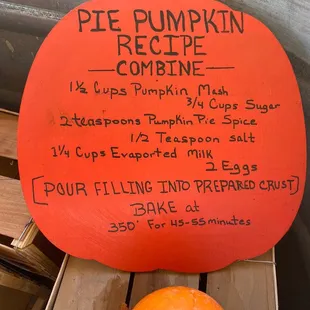 PIE PUMPKIN
RECIPE
—COMBINE—
1½ Cups Pumpkin Mash
3/4 Cups Sugar
2 teaspoons Pumpkin Pie Spice
1/2 Teaspoon salt
1¼ Cups Evaporated Milk
2 Eggs
[POUR FILLING INTO PREPARED CRUST]
BAKE at
350° For 45-55 minutes